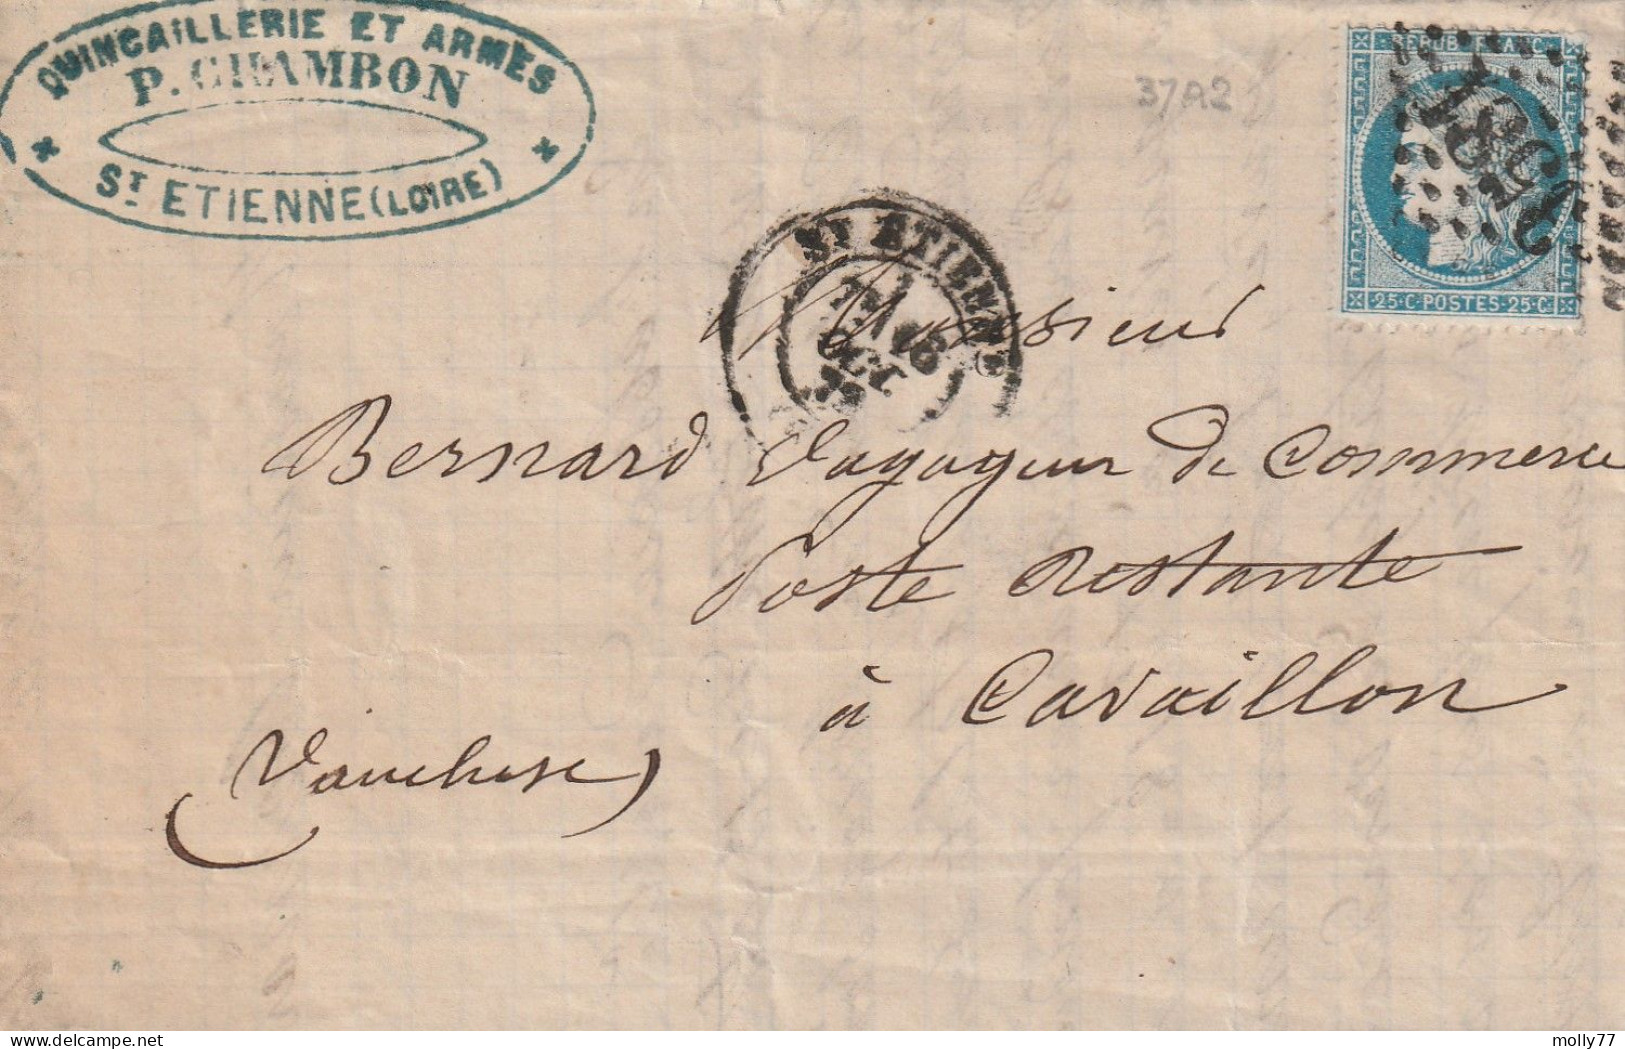 QUINCAILLERIE ET ARMES
P. CHAMBON
ST ETIENNE (LOIRE)
37A2
REPUB. FRANC.
25·C·POSTES·25·C
ST ETIENNE
16
OCT.
Monsieur
Bernard Voyageur de Commerce
Poste Restante
à Cavaillon
Vaucluse)
molly77